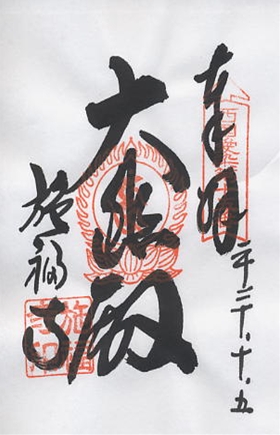 奉拝
平二十.十.五
大悲殿
施福寺